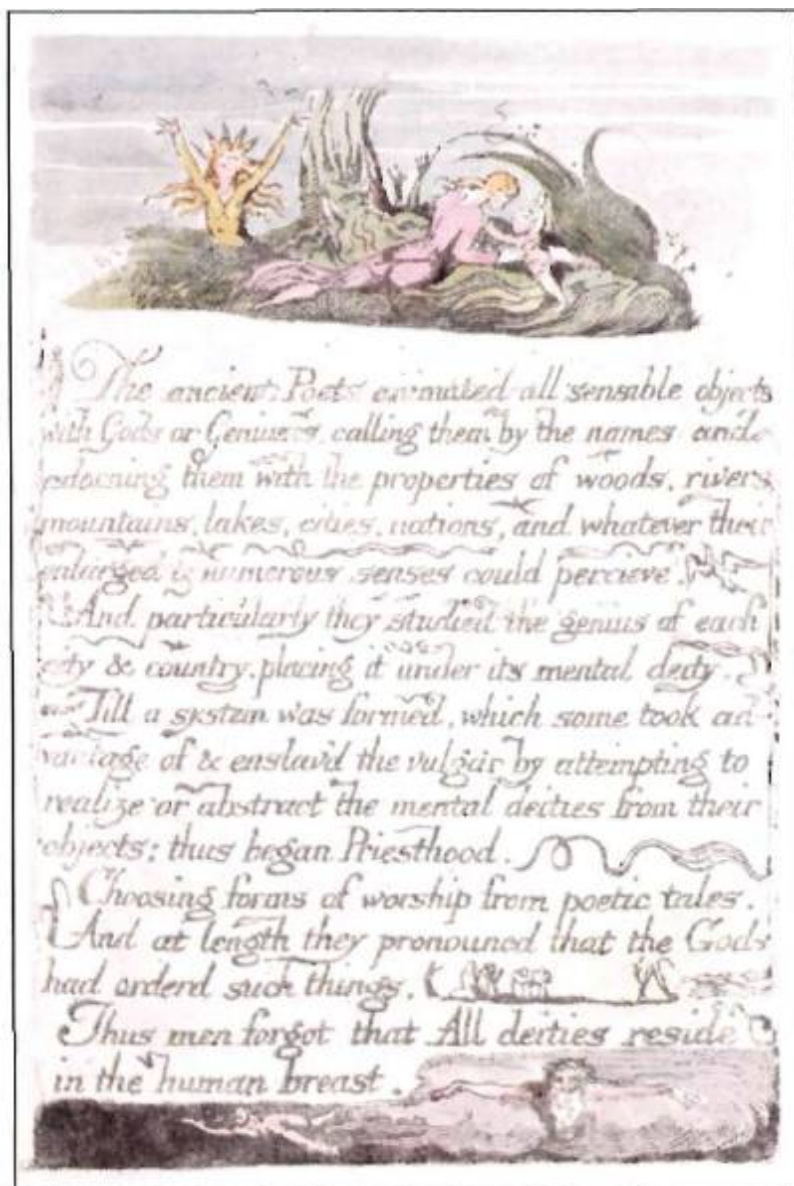 The ancient Poets animated all sensible objects
with Gods or Geniuses, calling them by the names and
adorning them with the properties of woods, rivers,
mountains, lakes, cities, nations, and whatever their
enlarged & numerous senses could percieve.
And particularly they studied the genius of each
city & country, placing it under its mental deity.
Till a system was formed, which some took ad-
vantage of & enslav'd the vulgar by attempting to
realize or abstract the mental deities from their
objects: thus began Priesthood.
Choosing forms of worship from poetic tales.
And at length they pronounced that the Gods
had orderd such things.
Thus men forgot that All deities reside
in the human breast.